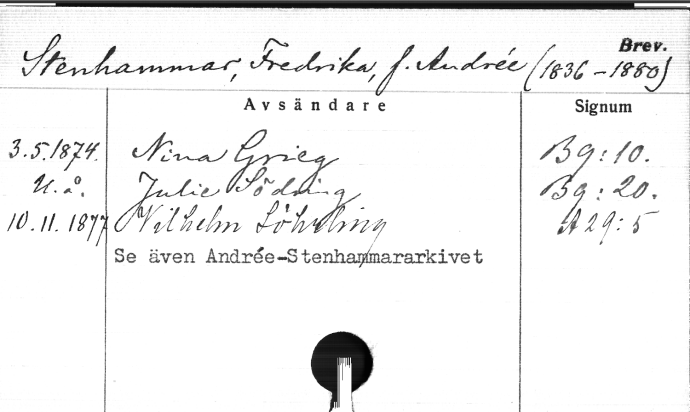 Brev.
Stenhammar, Fredrika, f. Andrée (1836-1880)
Avsändare Signum
3.5.1874. Nina Grieg Bg: 10.
U.å. Julie Södring Bg: 20.
10.11.1877 Vilhelm A29: 5
Se även Andrée-Stenhammararkivet